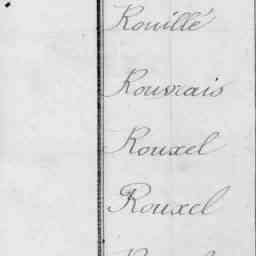 Rouillé
Rouvrais
Rouxel
Rouxel